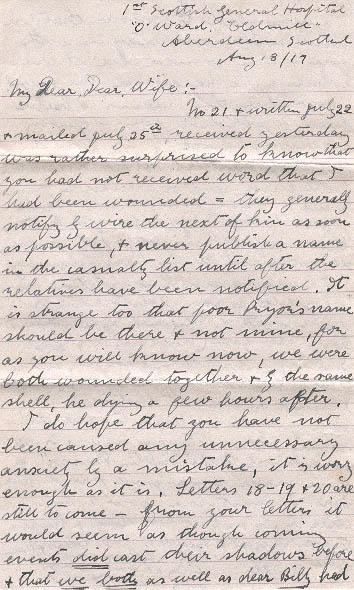 1st Scottish General Hospital
"O" Ward. Oldmill"
Aberdeen Scotland
Aug 18/17
My Dear, Dear, Wife :-
No 21 + written July 22
+ mailed July 25th, received yesterday
was rather surprised to know that
you had not received word that I
had been wounded = they generally
notify by wire the next of kin as soon
as possible, + never publish a name
in the casualty list until after the
relatives have been notified. It
is strange too that poor Pryor's name
should be there + not mine, for
as you will know now, we were
both wounded together + by the same
shell, he dying a few hours after.
I do hope that you have not
been caused any unnecessary
anxiety by a mistake, it is worry
enough as it is. Letters 18-19 + 20 are
still to come - from your letters it
would seem as though coming
events did cast their shadows before
+ that we both as well as dear Billy had